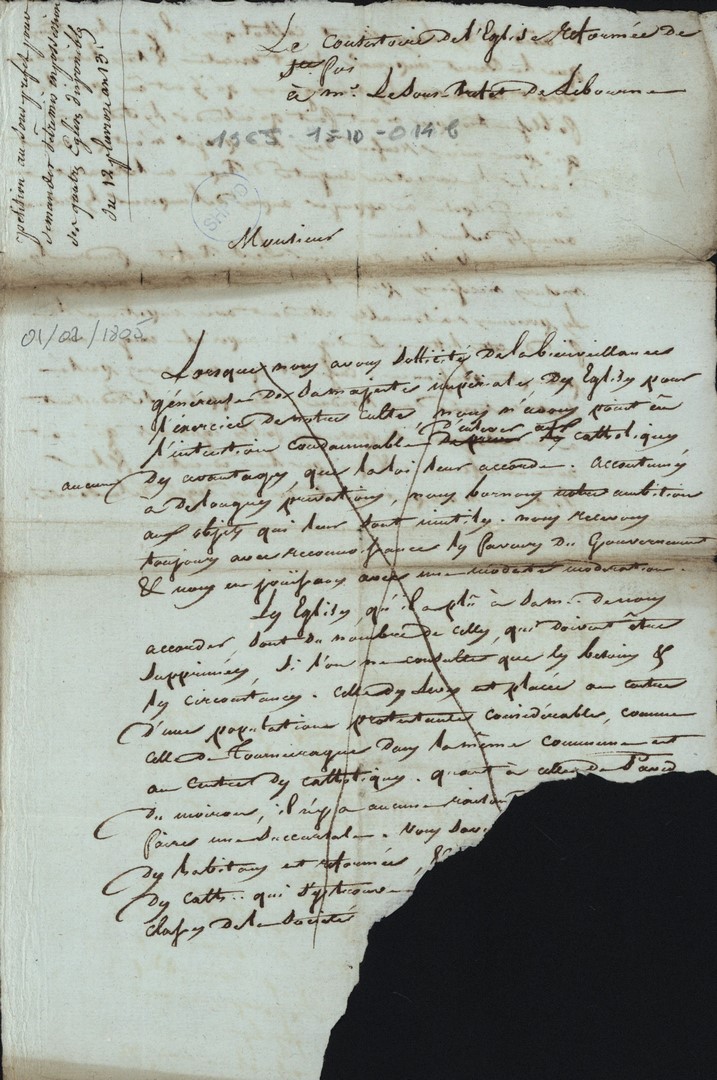 petition au Sous-prefet pour
demander
des quatre Eglises disponibles
du 12 pluviose an 13.
Le Consistoire de l'Eglise reformée de
Ste foi
à Mr. Le Sous-Prefet De Libourne
1963-15-10-014 6
SHPVD
Monsieur
01/02/1805
Lorsque nous avons Sollicité De la bienveillance
généreuse De Sa majesté impériale, Des Eglises pour
l'exercice De notre culte, nous n'avons point eu
l'intention condamnable D'enlever aux catholiques
aucuns Des avantages, que la loi leur accorde. accoutumés
à De longues privations, nous bornons notre ambition
aux objets qui leur Sont inutiles. nous recevons
toujours avec reconnoissance les faveurs Du Gouvernement
& nous en jouissons avec une modeste modération.
Les Eglises, qu'il a plû à Sa m.. De nous
accorder, Sont Du nombre de celles, qui Doivent être
Supprimées, Si l'on ne consulte que les besoins &
les circonstances. celle Des Leves est placée au centre
D'une population protestante considérable, comme
celle De Tourneirague Dans la même commune est
au centre Des catholiques. quant à celle De
Du moiron, il n'y a aucune raison
faire une Succursale. Vous
Des habitans est reformée, &
Des cath.. qui S'y trouve
classes De la Société